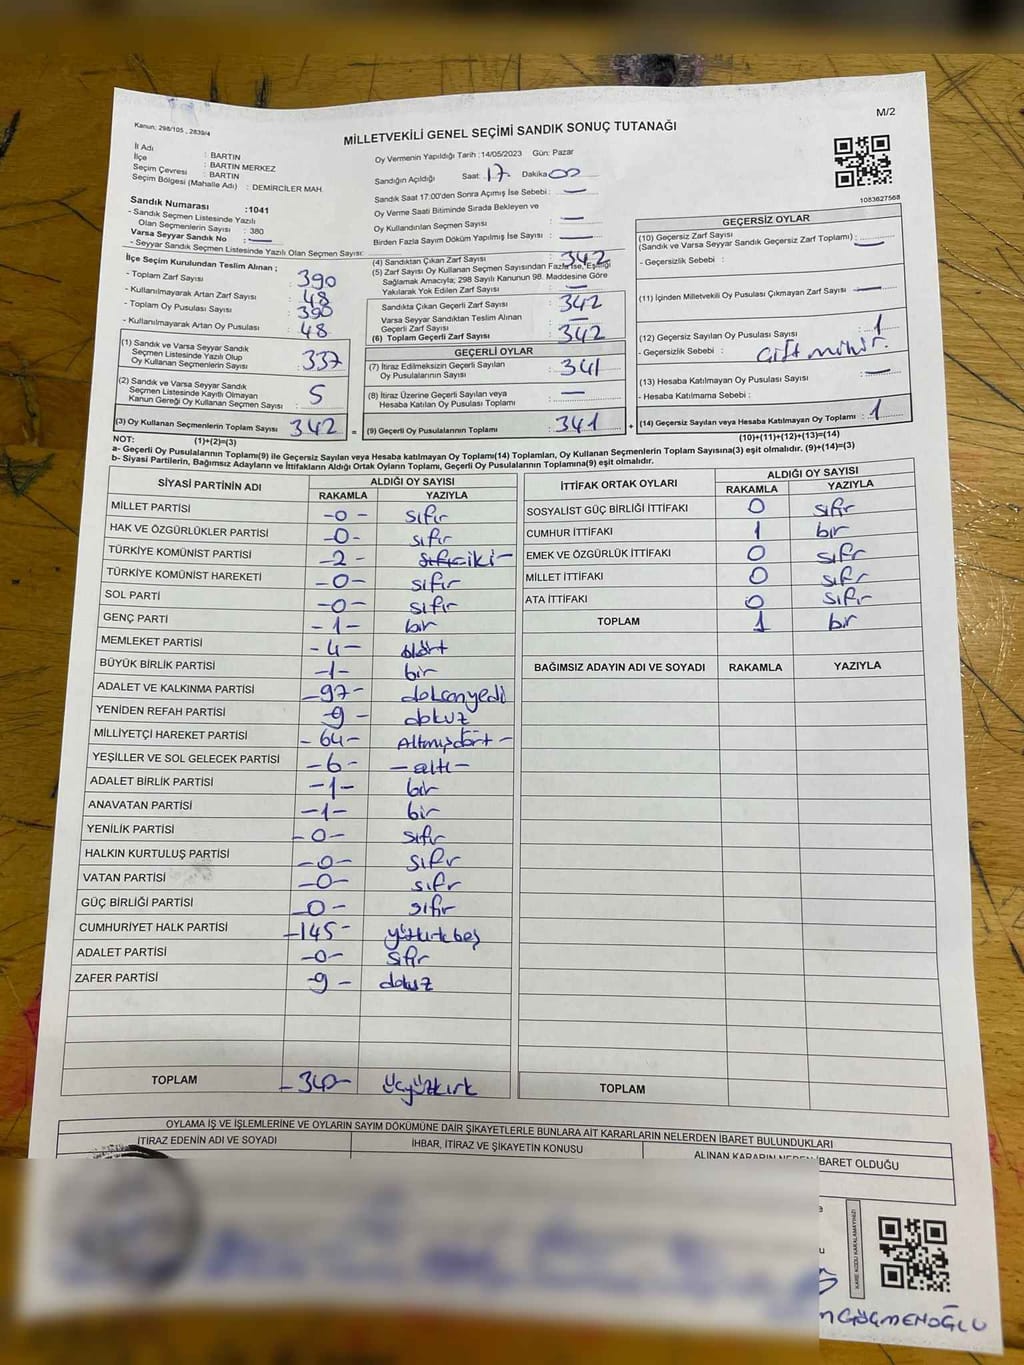 M/2
Kanun: 298/105 , 2839/4
MİLLETVEKİLİ GENEL SEÇİMİ SANDIK SONUÇ TUTANAĞI
İl Adı : BARTIN
İlçe : BARTIN MERKEZ
Seçim Çevresi : BARTIN
Seçim Bölgesi (Mahalle Adı) : DEMİRCİLER MAH.
Sandık Numarası :1041
- Sandık Seçmen Listesinde Yazılı
Olan Seçmenlerin Sayısı : 380
Varsa Seyyar Sandık No : —
- Seyyar Sandık Seçmen Listesinde Yazılı Olan Seçmen Sayısı:
Oy Vermenin Yapıldığı Tarih :14/05/2023 Gün: Pazar
Sandığın Açıldığı Saat: 17 Dakika 00
Sandık Saat 17:00'den Sonra Açılmış İse Sebebi : —
Oy Verme Saati Bitiminde Sırada Bekleyen ve
Oy Kullandırılan Seçmen Sayısı : —
Birden Fazla Sayım Döküm Yapılmış İse Sayısı : —
1083627568
İlçe Seçim Kurulundan Teslim Alınan ;
- Toplam Zarf Sayısı : 390
- Kullanılmayarak Artan Zarf Sayısı : 48
- Toplam Oy Pusulası Sayısı : 390
- Kullanılmayarak Artan Oy Pusulası : 48
(1) Sandık ve Varsa Seyyar Sandık
Seçmen Listesinde Yazılı Olup
Oy Kullanan Seçmenlerin Sayısı : 337
(2) Sandık ve Varsa Seyyar Sandık
Seçmen Listesinde Kayıtlı Olmayan
Kanun Gereği Oy Kullanan Seçmen Sayısı : 5
(3) Oy Kullanan Seçmenlerin Toplam Sayısı : 342
(4) Sandıktan Çıkan Zarf Sayısı : 342
(5) Zarf Sayısı Oy Kullanan Seçmen Sayısından Fazla İse, Eşitliği
Sağlamak Amacıyla; 298 Sayılı Kanunun 98. Maddesine Göre
Yakılarak Yok Edilen Zarf Sayısı : —
Sandıkta Çıkan Geçerli Zarf Sayısı : 342
Varsa Seyyar Sandıktan Teslim Alınan
Geçerli Zarf Sayısı : —
(6) Toplam Geçerli Zarf Sayısı : 342
GEÇERLİ OYLAR
(7) İtiraz Edilmeksizin Geçerli Sayılan
Oy Pusulalarının Sayısı : 341
(8) İtiraz Üzerine Geçerli Sayılan veya
Hesaba Katılan Oy Pusulası Toplamı : —
= (9) Geçerli Oy Pusulalarının Toplamı : 341
GEÇERSİZ OYLAR
(10) Geçersiz Zarf Sayısı
(Sandık ve Varsa Seyyar Sandık Geçersiz Zarf Toplamı) : —
- Geçersizlik Sebebi :
(11) İçinden Milletvekili Oy Pusulası Çıkmayan Zarf Sayısı : —
(12) Geçersiz Sayılan Oy Pusulası Sayısı : 1
- Geçersizlik Sebebi : Çift mühür.
(13) Hesaba Katılmayan Oy Pusulası Sayısı : —
- Hesaba Katılmama Sebebi :
+ (14) Geçersiz Sayılan veya Hesaba Katılmayan Oy Toplamı : 1
NOT: (1)+(2)=(3) (10)+(11)+(12)+(13)=(14)
a- Geçerli Oy Pusulalarının Toplamı(9) ile Geçersiz Sayılan veya Hesaba katılmayan Oy Toplamı(14) Toplamları, Oy Kullanan Seçmenlerin Toplam Sayısına(3) eşit olmalıdır. (9)+(14)=(3)
b- Siyasi Partilerin, Bağımsız Adayların ve İttifakların Aldığı Ortak Oyların Toplamı, Geçerli Oy Pusulalarının Toplamına(9) eşit olmalıdır.
SİYASİ PARTİNİN ADI ALDIĞI OY SAYISI
RAKAMLA YAZIYLA
MİLLET PARTİSİ -0- sıfır
HAK VE ÖZGÜRLÜKLER PARTİSİ -0- sıfır
TÜRKİYE KOMÜNİST PARTİSİ -2- sıfır iki-
TÜRKİYE KOMÜNİST HAREKETİ -0- sıfır
SOL PARTİ -0- sıfır
GENÇ PARTİ -1- bir
MEMLEKET PARTİSİ -4- dört
BÜYÜK BİRLİK PARTİSİ -1- bir
ADALET VE KALKINMA PARTİSİ -97- doksanyedi
YENİDEN REFAH PARTİSİ -9- dokuz
MİLLİYETÇİ HAREKET PARTİSİ -64- Altmışdört-
YEŞİLLER VE SOL GELECEK PARTİSİ -6- -altı-
ADALET BİRLİK PARTİSİ -1- bir
ANAVATAN PARTİSİ -1- bir
YENİLİK PARTİSİ -0- sıfır
HALKIN KURTULUŞ PARTİSİ -0- sıfır
VATAN PARTİSİ -0- sıfır
GÜÇ BİRLİĞİ PARTİSİ -0- sıfır
CUMHURİYET HALK PARTİSİ -145- yüzkırkbeş
ADALET PARTİSİ -0- sıfır
ZAFER PARTİSİ -9- dokuz
TOPLAM -340- üçyüzkırk
İTTİFAK ORTAK OYLARI ALDIĞI OY SAYISI
RAKAMLA YAZIYLA
SOSYALİST GÜÇ BİRLİĞİ İTTİFAKI 0 sıfır
CUMHUR İTTİFAKI 1 bir
EMEK VE ÖZGÜRLÜK İTTİFAKI 0 sıfır
MİLLET İTTİFAKI 0 sıfır
ATA İTTİFAKI 0 sıfır
TOPLAM 1 bir
BAĞIMSIZ ADAYIN ADI VE SOYADI RAKAMLA YAZIYLA
TOPLAM
OYLAMA İŞ VE İŞLEMLERİNE VE OYLARIN SAYIM DÖKÜMÜNE DAİR ŞİKAYETLERLE BUNLARA AİT KARARLARIN NELERDEN İBARET BULUNDUKLARI
İTİRAZ EDENİN ADI VE SOYADI İHBAR, İTİRAZ VE ŞİKAYETİN KONUSU ALINAN KARARIN NEDEN İBARET OLDUĞU
KARE KODU KARALAMAYINIZ!
GÖÇMENOĞLU